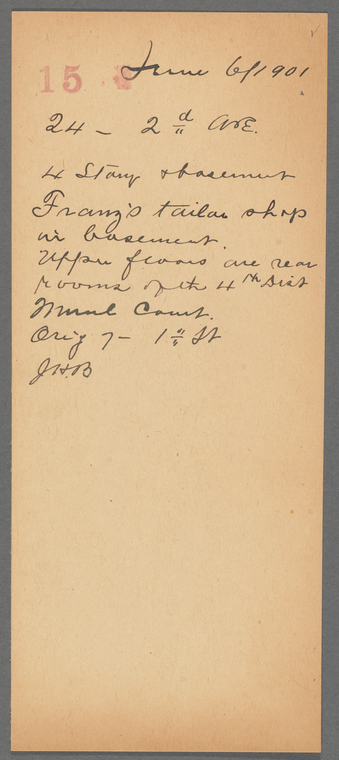 15 June 6/1901
24 - 2d Ave.
4 Story & basement
Franz's tailor shop
in basement.
Upper floors are rear
rooms of th 4th Dist
Munl Court.
Orig 7 - 1st St
J.H.B